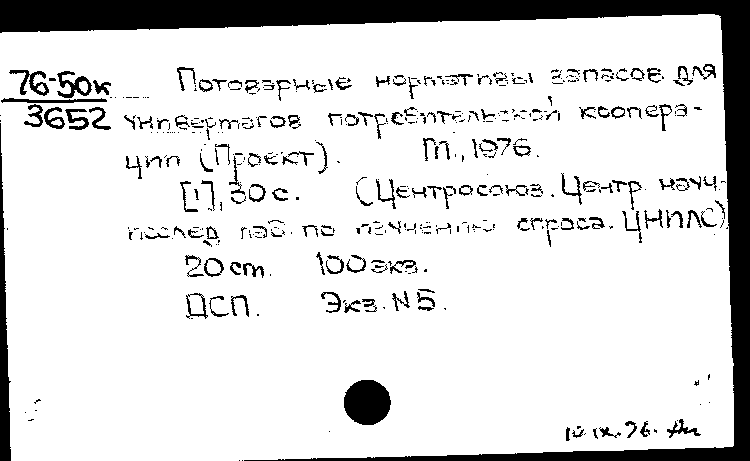 76-50к
3652
Потоварные нормативы запасов для
универмагов потребительской коопера-
ции (Проект). М., 1976.
[1], 30 с. (Центросоюз. Центр. науч.-
исслед. лаб. по изучению спроса. ЦНИЛС)
20 см. 100 экз.
ДСП. Экз. N 5.
10.IX.76.